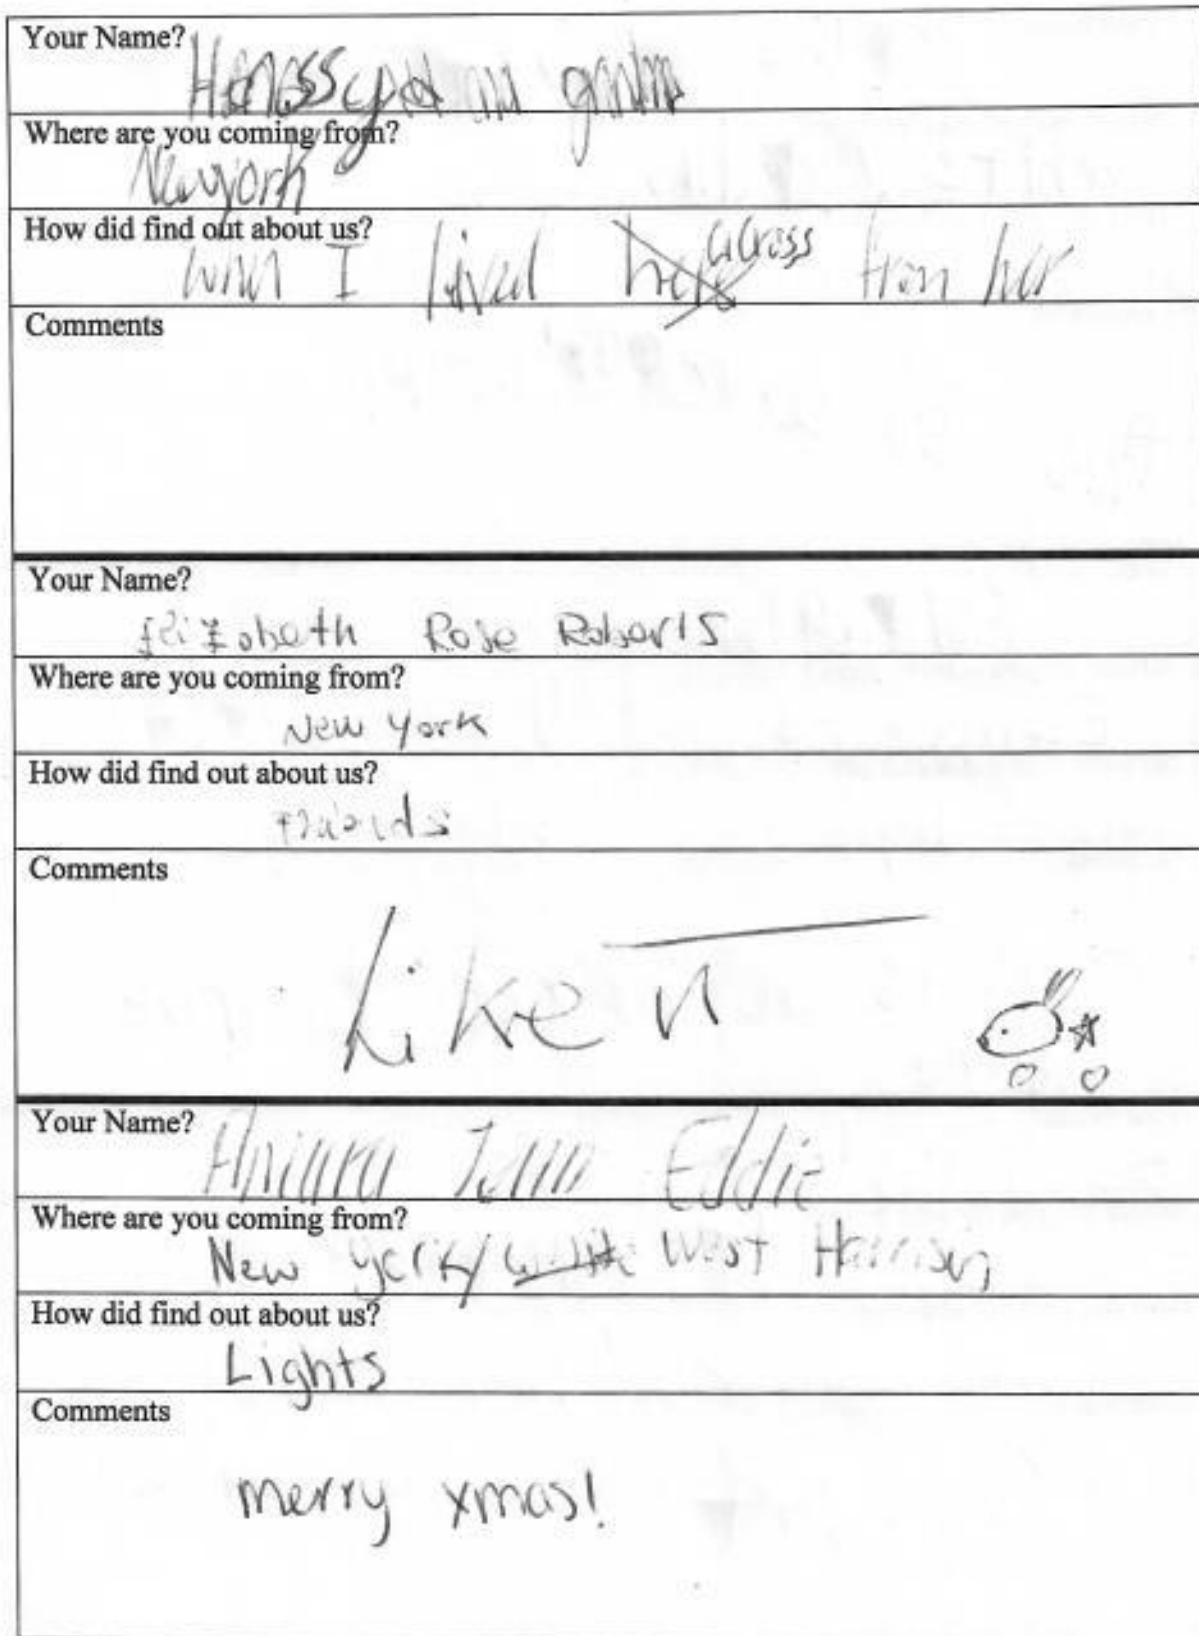 Your Name?
Where are you coming from?
Newyork
How did find out about us?
I lived across from her
Comments
Your Name?
Elizabeth Rose Roberts
Where are you coming from?
New York
How did find out about us?
Comments
Like
Your Name?
Eddie
Where are you coming from?
New York/ West Harrison
How did find out about us?
Lights
Comments
merry xmas!